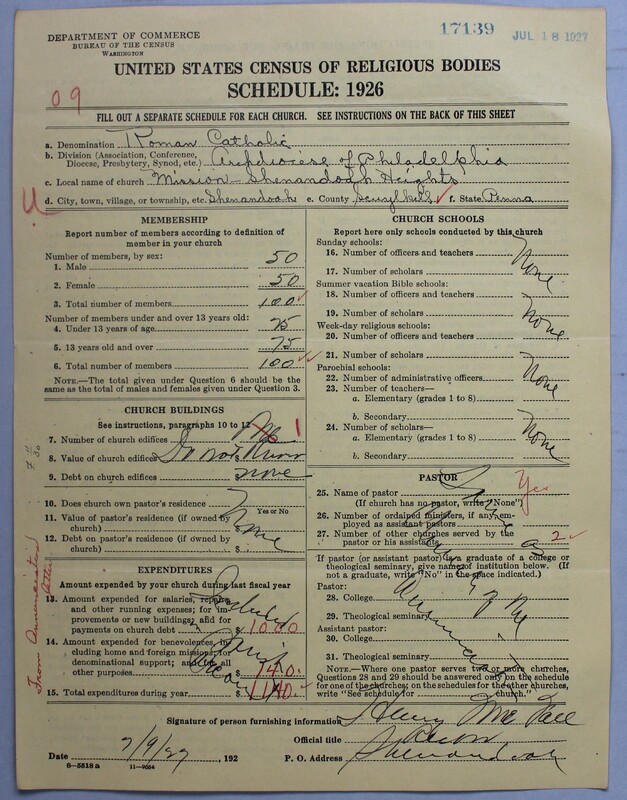 DEPARTMENT OF COMMERCE
BUREAU OF THE CENSUS
WASHINGTON
17139
JUL 18 1927
UNITED STATES CENSUS OF RELIGIOUS BODIES
SCHEDULE: 1926
09
FILL OUT A SEPARATE SCHEDULE FOR EACH CHURCH. SEE INSTRUCTIONS ON THE BACK OF THIS SHEET
a. Denomination Roman Catholic
b. Division (Association, Conference, Diocese, Presbytery, Synod, etc.) Archdiocese of Philadelphia
c. Local name of church Mission - Shenandoah Heights
d. City, town, village, or township, etc. Shenandoah e. County Schuylkill f. State Penna
MEMBERSHIP
Report number of members according to definition of
member in your church
Number of members, by sex:
1. Male 50
2. Female 50
3. Total number of members 100
Number of members under and over 13 years old:
4. Under 13 years of age 25
5. 13 years old and over 75
6. Total number of members 100
NOTE.—The total given under Question 6 should be
the same as the total of males and females given under Question 3.
CHURCH BUILDINGS
See instructions, paragraphs 10 to 12
7. Number of church edifices 1
8. Value of church edifices $ Do not Know
9. Debt on church edifices none
10. Does church own pastor's residence? Yes or No
11. Value of pastor's residence (if owned by
church) $ None
12. Debt on pastor's residence (if owned by
church) $
EXPENDITURES
Amount expended by your church during last fiscal year
13. Amount expended for salaries, repairs,
and other running expenses; for im-
provements or new buildings; and for
payments on church debt $ 1000
14. Amount expended for benevolences, in-
cluding home and foreign missions, for
denominational support; and for all
other purposes $ 140.
15. Total expenditures during year $ 1140.
From Annunciation
CHURCH SCHOOLS
Report here only schools conducted by this church
Sunday schools:
16. Number of officers and teachers None
17. Number of scholars
Summer vacation Bible schools:
18. Number of officers and teachers None
19. Number of scholars
Week-day religious schools:
20. Number of officers and teachers None
21. Number of scholars
Parochial schools:
22. Number of administrative officers
23. Number of teachers—
a. Elementary (grades 1 to 8)
b. Secondary
24. Number of scholars— None
a. Elementary (grades 1 to 8)
b. Secondary
PASTOR
25. Name of pastor Yes
(If church has no pastor, write "None")
26. Number of ordained ministers, if any, em-
ployed as assistant pastors
27. Number of other churches served by the
pastor or his assistants 2
If pastor (or assistant pastor) is a graduate of a college or
theological seminary, give name of institution below. (If
not a graduate, write "No" in the place indicated.)
Pastor:
28. College
29. Theological seminary
Assistant pastor:
30. College
31. Theological seminary
NOTE.—Where one pastor serves two or more churches,
Questions 28 and 29 should be answered only on the schedule
for one of the churches; on the schedules for the other churches,
write "See schedule for church."
Signature of person furnishing information Henry
Official title
Date 7/9/27, 192 P. O. Address Shenandoah
6—5518 a 11—9654